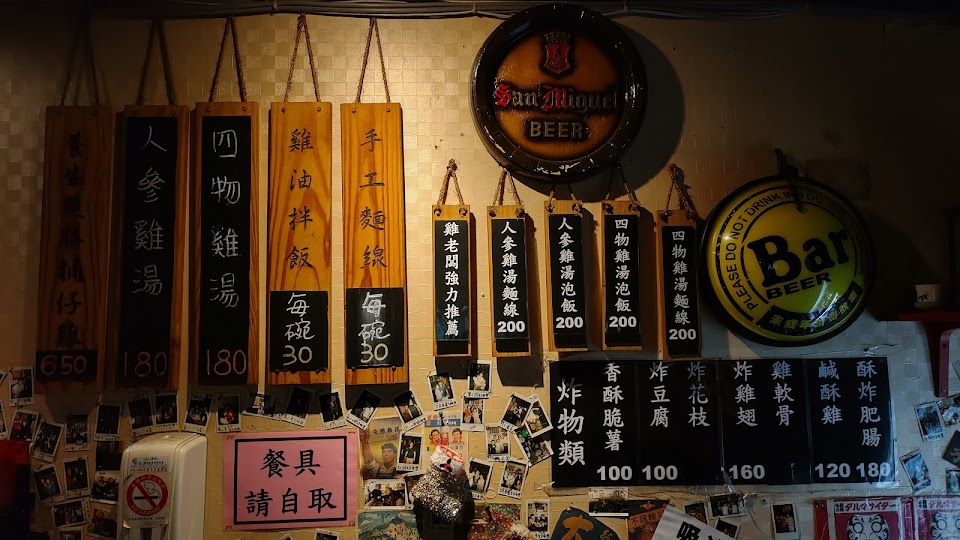 人參雞湯
180
四物雞湯
180
雞油拌飯
每碗
30
手工麵線
每碗
30
650
San Miguel
BEER
雞老闆強力推薦
人參雞湯麵線
200
人參雞湯泡飯
200
四物雞湯泡飯
200
四物雞湯麵線
200
PLEASE DO NOT DRINK
Bar
BEER
炸物類
香酥脆薯
100
炸豆腐
100
炸花枝
炸雞翅
160
雞軟骨
鹹酥雞
120
酥炸肥腸
180
餐具
請自取